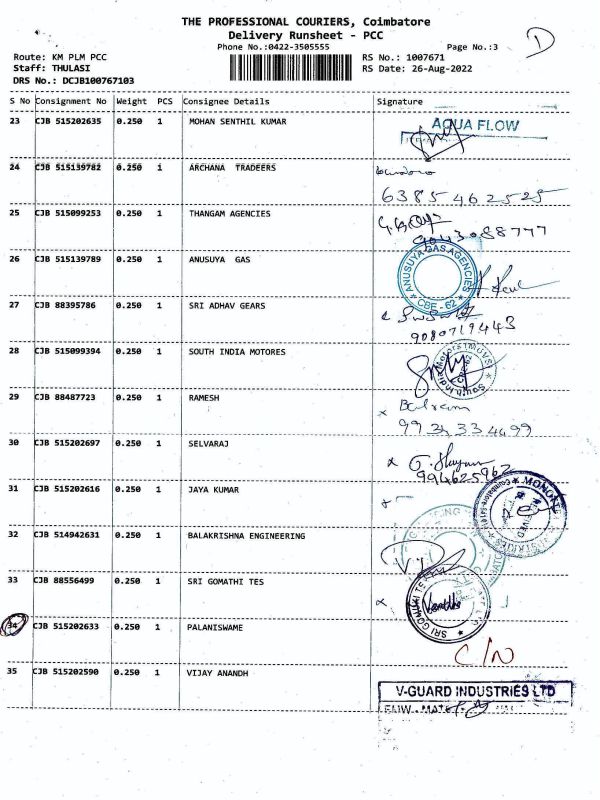 THE PROFESSIONAL COURIERS, Coimbatore
Delivery Runsheet - PCC
Phone No.:0422-3505555
Page No.:3
D
Route: KM PLM PCC
RS No.: 1007671
Staff: THULASI
RS Date: 26-Aug-2022
DRS No.: DCJB100767103
S No Consignment No Weight PCS Consignee Details Signature
23 CJB 515202635 0.250 1 MOHAN SENTHIL KUMAR
AQUA FLOW
24 CJB 515139782 0.250 1 ARCHANA TRADEERS
6385462525
25 CJB 515099253 0.250 1 THANGAM AGENCIES
9043088777
26 CJB 515139789 0.250 1 ANUSUYA GAS
ANUSUYA GAS AGENCIES
CBE - 62
27 CJB 88395786 0.250 1 SRI ADHAV GEARS
9080719443
28 CJB 515099394 0.250 1 SOUTH INDIA MOTORES
South India Motors
29 CJB 88487723 0.250 1 RAMESH
30 CJB 515202697 0.250 1 SELVARAJ
31 CJB 515202616 0.250 1 JAYA KUMAR
32 CJB 514942631 0.250 1 BALAKRISHNA ENGINEERING
33 CJB 88556499 0.250 1 SRI GOMATHI TES
34 CJB 515202633 0.250 1 PALANISWAME
C/N
35 CJB 515202590 0.250 1 VIJAY ANANDH
V-GUARD INDUSTRIES LTD